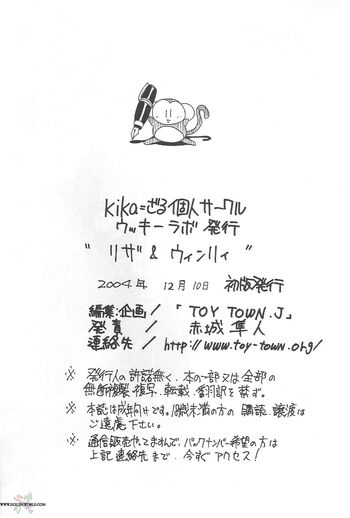 Kika=ざる個人サークル
ウッキーラボ発行
"リザ & ウィンリィ"
2004年 12月10日 初版発行
編集・企画/「TOY TOWN.J」
発責/ 赤城隼人
連絡先/http://www.toy-town.org/
※ 発行人の許諾無く、本の一部又は全部の
無断複製・複写、転載、翻訳を禁ず。
※ 本誌は成年向けです。
の購読、譲渡は
ご遠慮下さい。
※ 通信販売やってますんで、バックナンバー希望の方は
上記連絡先まで、今すぐアクセス!
WWW.DOUJINWORLD.COM